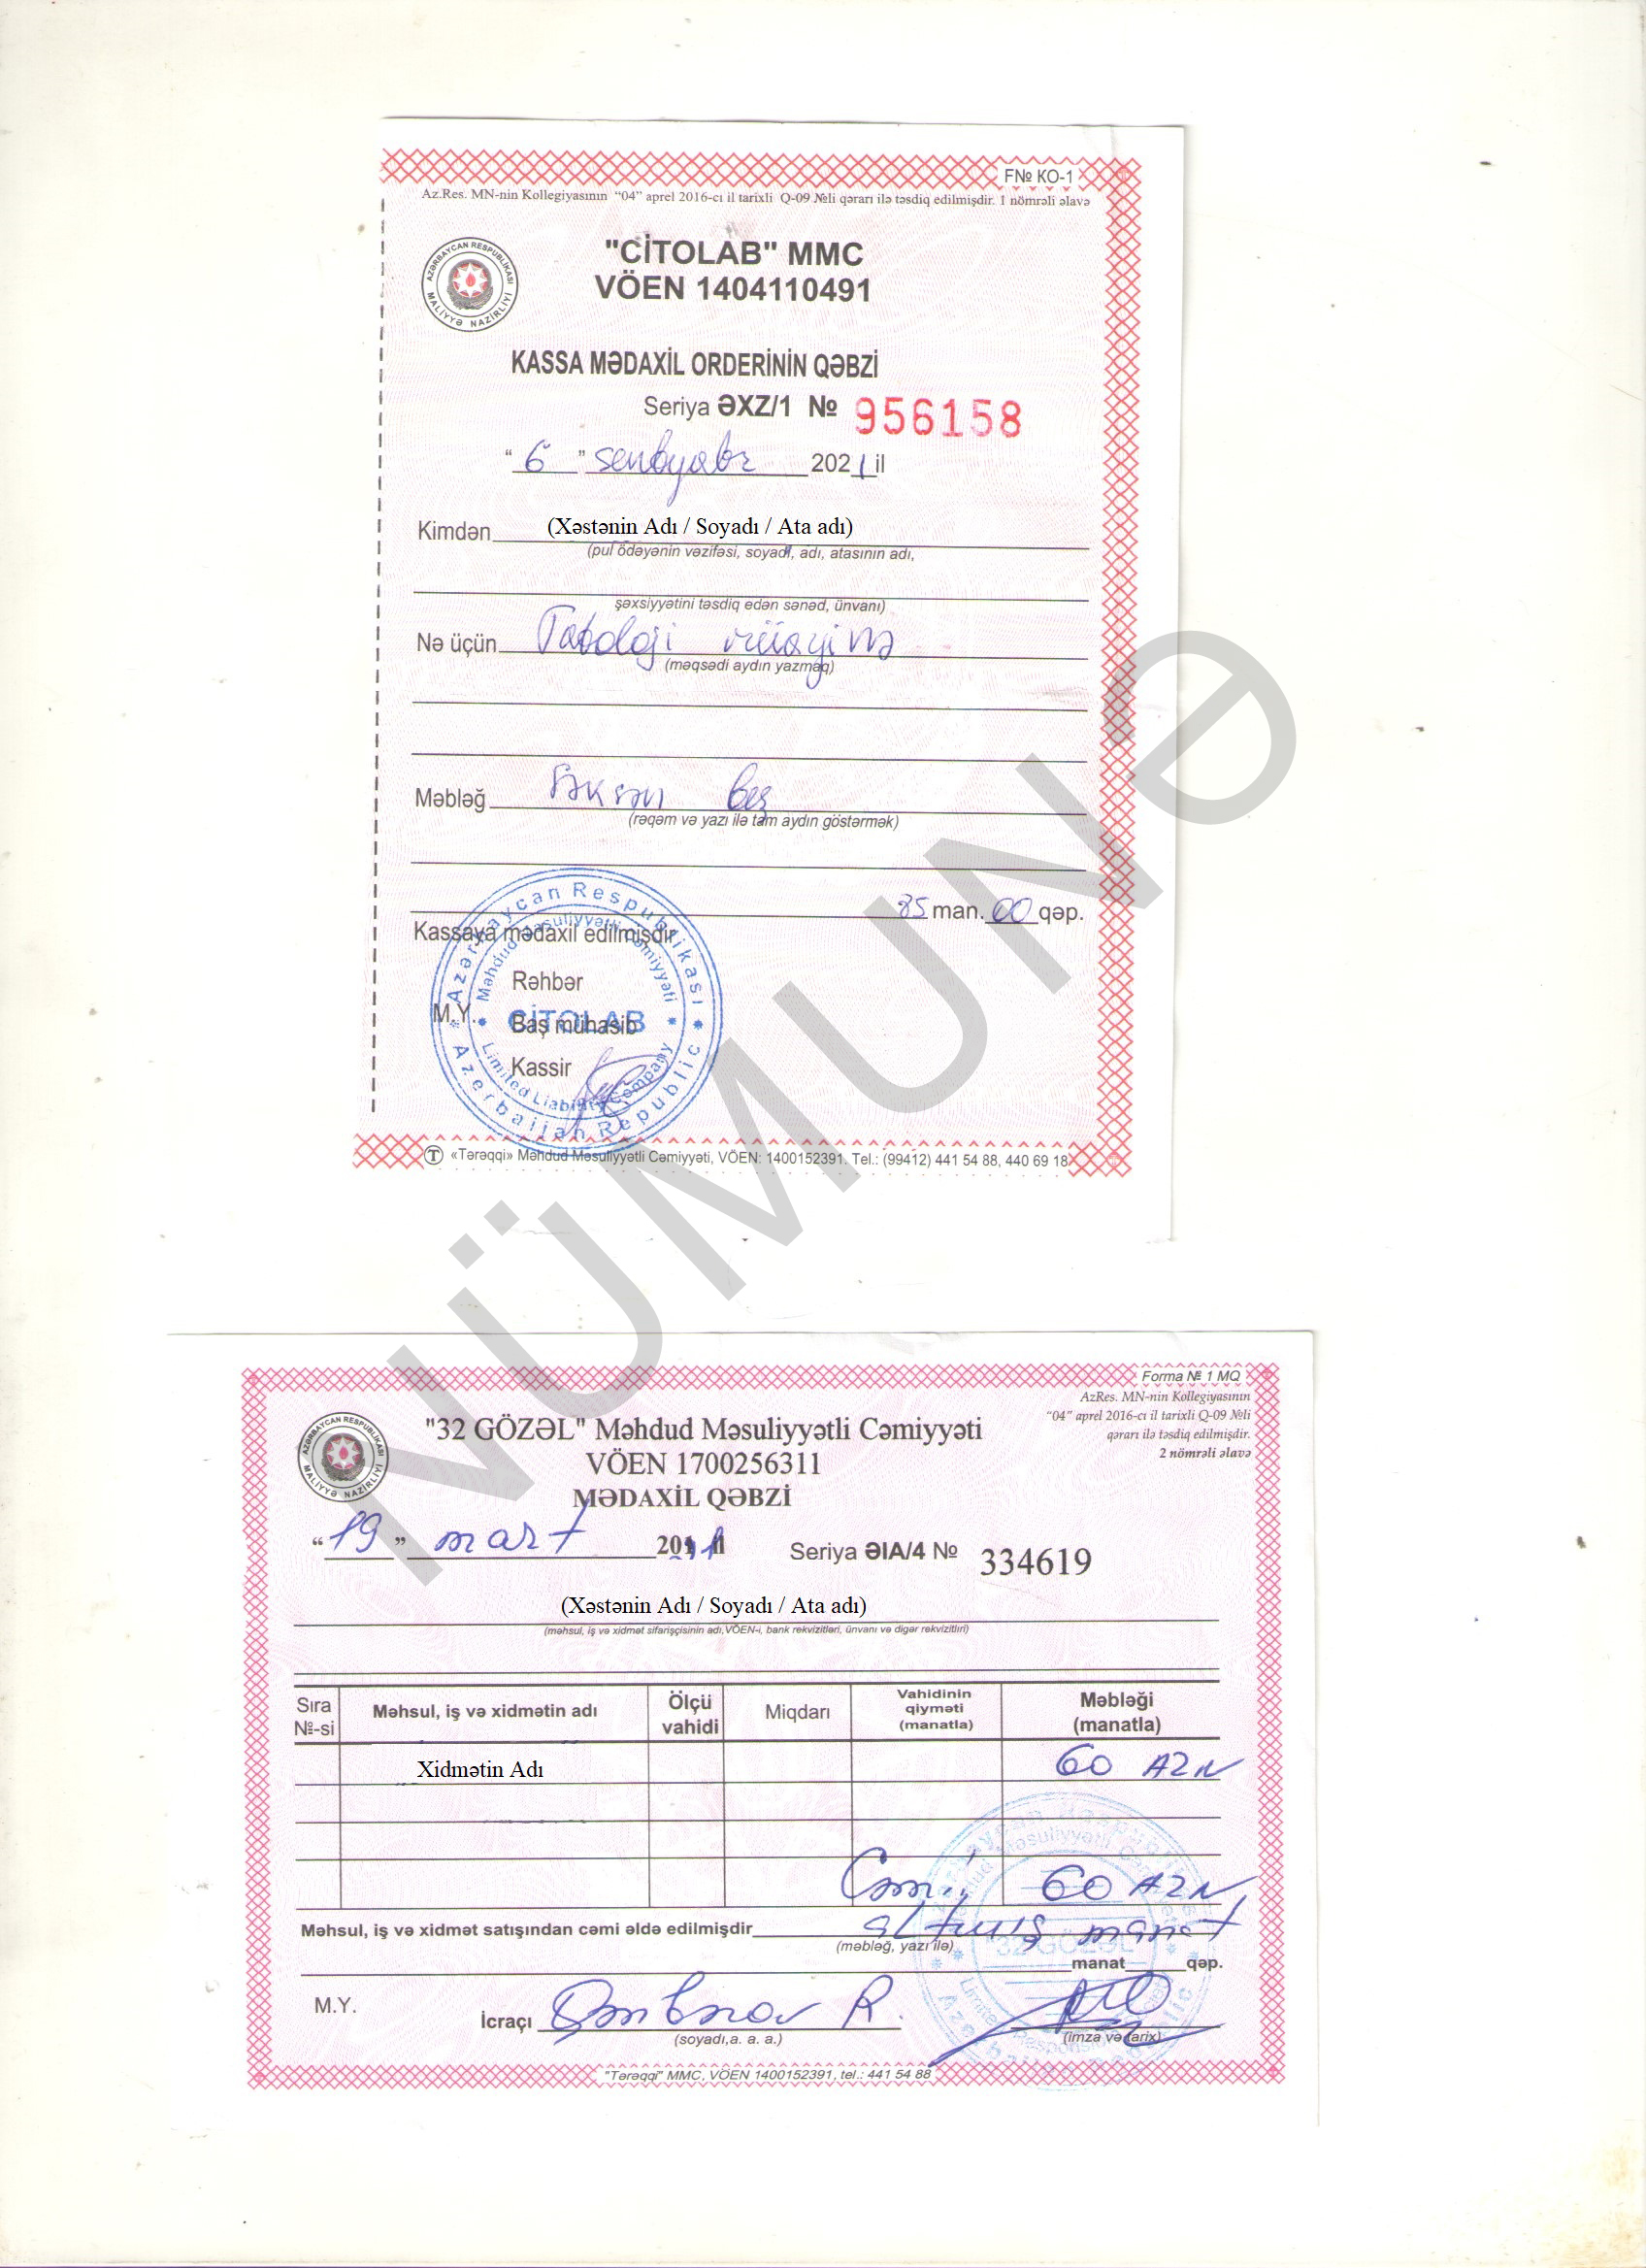 FNº KO-1
Az.Res. MN-nin Kollegiyasının "04" aprel 2016-cı il tarixli Q-09 №li qərarı ilə təsdiq edilmişdir. 1 nömrəli əlavə
AZƏRBAYCAN RESPUBLİKASI MALİYYƏ NAZİRLİYİ
"CİTOLAB" MMC
VÖEN 1404110491
KASSA MƏDAXİL ORDERİNİN QƏBZİ
Seriya ƏXZ/1 № 956158
"6" sentyabr 2021 il
Kimdən (Xəstənin Adı / Soyadı / Ata adı)
(pul ödəyənin vəzifəsi, soyadı, adı, atasının adı,
şəxsiyyətini təsdiq edən sənəd, ünvanı)
Nə üçün Patoloji müayinə
(məqsədi aydın yazmaq)
Məbləğ səksən beş
(rəqəm və yazı ilə tam aydın göstərmək)
85 man. 00 qəp.
Kassaya mədaxil edilmişdir
Rəhbər
M.Y. Baş mühasib
Kassir
Azərbaycan Respublikası
Məhdud Məsuliyyətli Cəmiyyəti
CİTOLAB
Limited Liability Company
Azerbaijan Republic
«Tərəqqi» Məhdud Məsuliyyətli Cəmiyyəti, VÖEN: 1400152391. Tel.: (99412) 441 54 88, 440 69 18
NÜMUNƏ
Forma № 1 MQ
AzRes. MN-nin Kollegiyasının
"04" aprel 2016-cı il tarixli Q-09 №li
qərarı ilə təsdiq edilmişdir.
2 nömrəli əlavə
AZƏRBAYCAN RESPUBLİKASI MALİYYƏ NAZİRLİYİ
"32 GÖZƏL" Məhdud Məsuliyyətli Cəmiyyəti
VÖEN 1700256311
MƏDAXİL QƏBZİ
"19" mart Seriya ƏIA/4 № 334619
(Xəstənin Adı / Soyadı / Ata adı)
(məhsul, iş və xidmət sifarişçisinin adı,VÖEN-i, bank rekvizitləri, ünvanı və digər rekvizitlri)
Sıra №-si Məhsul, iş və xidmətin adı Ölçü vahidi Miqdarı Vahidinin qiyməti (manatla) Məbləği (manatla)
Xidmətin Adı 60 AZN
Cəmi: 60 AZN
Məhsul, iş və xidmət satışından cəmi əldə edilmişdir altmış manat
(məbləğ, yazı ilə)
manat qəp.
M.Y. İcraçı R.
(soyadı,a. a. a.) (imza və tarix)
32 GÖZƏL
"Tərəqqi" MMC, VÖEN 1400152391, tel.: 441 54 88